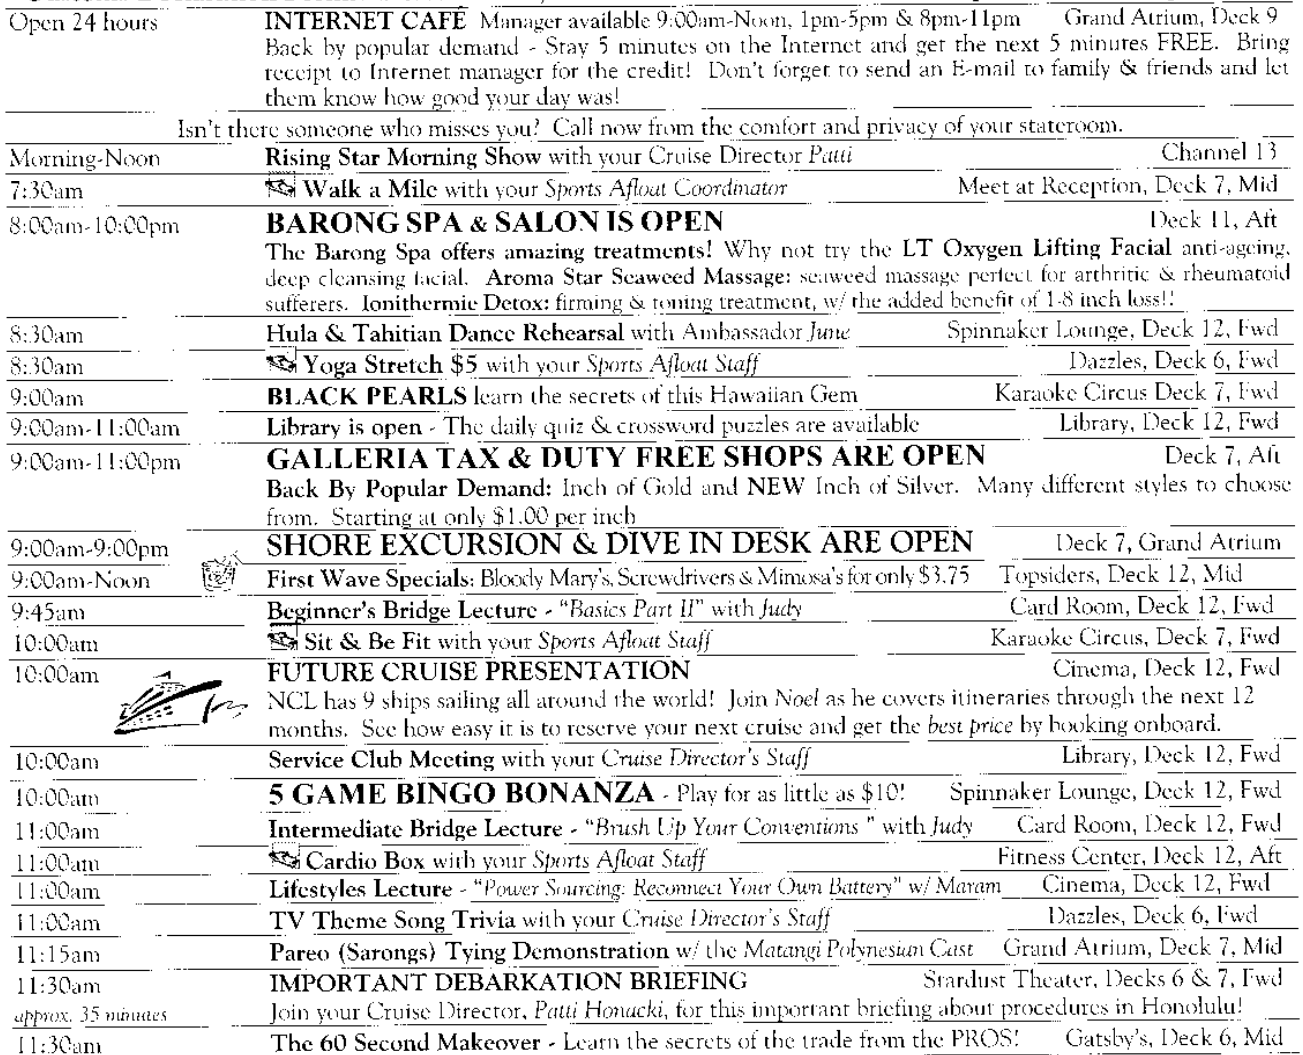 Open 24 hours INTERNET CAFÉ Manager available 9:00am-Noon, 1pm-5pm & 8pm-11pm Grand Atrium, Deck 9
Back by popular demand - Stay 5 minutes on the Internet and get the next 5 minutes FREE. Bring
receipt to Internet manager for the credit! Don't forget to send an E-mail to family & friends and let
them know how good your day was!
Isn't there someone who misses you? Call now from the comfort and privacy of your stateroom.
Morning-Noon Rising Star Morning Show with your Cruise Director Patti Channel 13
7:30am Walk a Mile with your Sports Afloat Coordinator Meet at Reception, Deck 7, Mid
8:00am-10:00pm BARONG SPA & SALON IS OPEN Deck 11, Aft
The Barong Spa offers amazing treatments! Why not try the LT Oxygen Lifting Facial anti-ageing,
deep cleansing facial. Aroma Star Seaweed Massage: seaweed massage perfect for arthritic & rheumatoid
sufferers. Ionithermie Detox: firming & toning treatment, w/ the added benefit of 1-8 inch loss!!
8:30am Hula & Tahitian Dance Rehearsal with Ambassador June Spinnaker Lounge, Deck 12, Fwd
8:30am Yoga Stretch $5 with your Sports Afloat Staff Dazzles, Deck 6, Fwd
9:00am BLACK PEARLS learn the secrets of this Hawaiian Gem Karaoke Circus Deck 7, Fwd
9:00am-11:00am Library is open - The daily quiz & crossword puzzles are available Library, Deck 12, Fwd
9:00am-11:00pm GALLERIA TAX & DUTY FREE SHOPS ARE OPEN Deck 7, Aft
Back By Popular Demand: Inch of Gold and NEW Inch of Silver. Many different styles to choose
from. Starting at only $1.00 per inch
9:00am-9:00pm SHORE EXCURSION & DIVE IN DESK ARE OPEN Deck 7, Grand Atrium
9:00am-Noon First Wave Specials: Bloody Mary's, Screwdrivers & Mimosa's for only $3.75 Topsiders, Deck 12, Mid
9:45am Beginner's Bridge Lecture - "Basics Part II" with Judy Card Room, Deck 12, Fwd
10:00am Sit & Be Fit with your Sports Afloat Staff Karaoke Circus, Deck 7, Fwd
10:00am FUTURE CRUISE PRESENTATION Cinema, Deck 12, Fwd
NCL has 9 ships sailing all around the world! Join Noel as he covers itineraries through the next 12
months. See how easy it is to reserve your next cruise and get the best price by booking onboard.
10:00am Service Club Meeting with your Cruise Director's Staff Library, Deck 12, Fwd
10:00am 5 GAME BINGO BONANZA - Play for as little as $10! Spinnaker Lounge, Deck 12, Fwd
11:00am Intermediate Bridge Lecture - "Brush Up Your Conventions " with Judy Card Room, Deck 12, Fwd
11:00am Cardio Box with your Sports Afloat Staff Fitness Center, Deck 12, Aft
11:00am Lifestyles Lecture - "Power Sourcing: Reconnect Your Own Battery" w/ Maram Cinema, Deck 12, Fwd
11:00am TV Theme Song Trivia with your Cruise Director's Staff Dazzles, Deck 6, Fwd
11:15am Pareo (Sarongs) Tying Demonstration w/ the Matangi Polynesian Cast Grand Atrium, Deck 7, Mid
11:30am IMPORTANT DEBARKATION BRIEFING Stardust Theater, Decks 6 & 7, Fwd
approx. 35 minutes Join your Cruise Director, Patti Honacki, for this important briefing about procedures in Honolulu!
11:30am The 60 Second Makeover - Learn the secrets of the trade from the PROS! Gatsby's, Deck 6, Mid